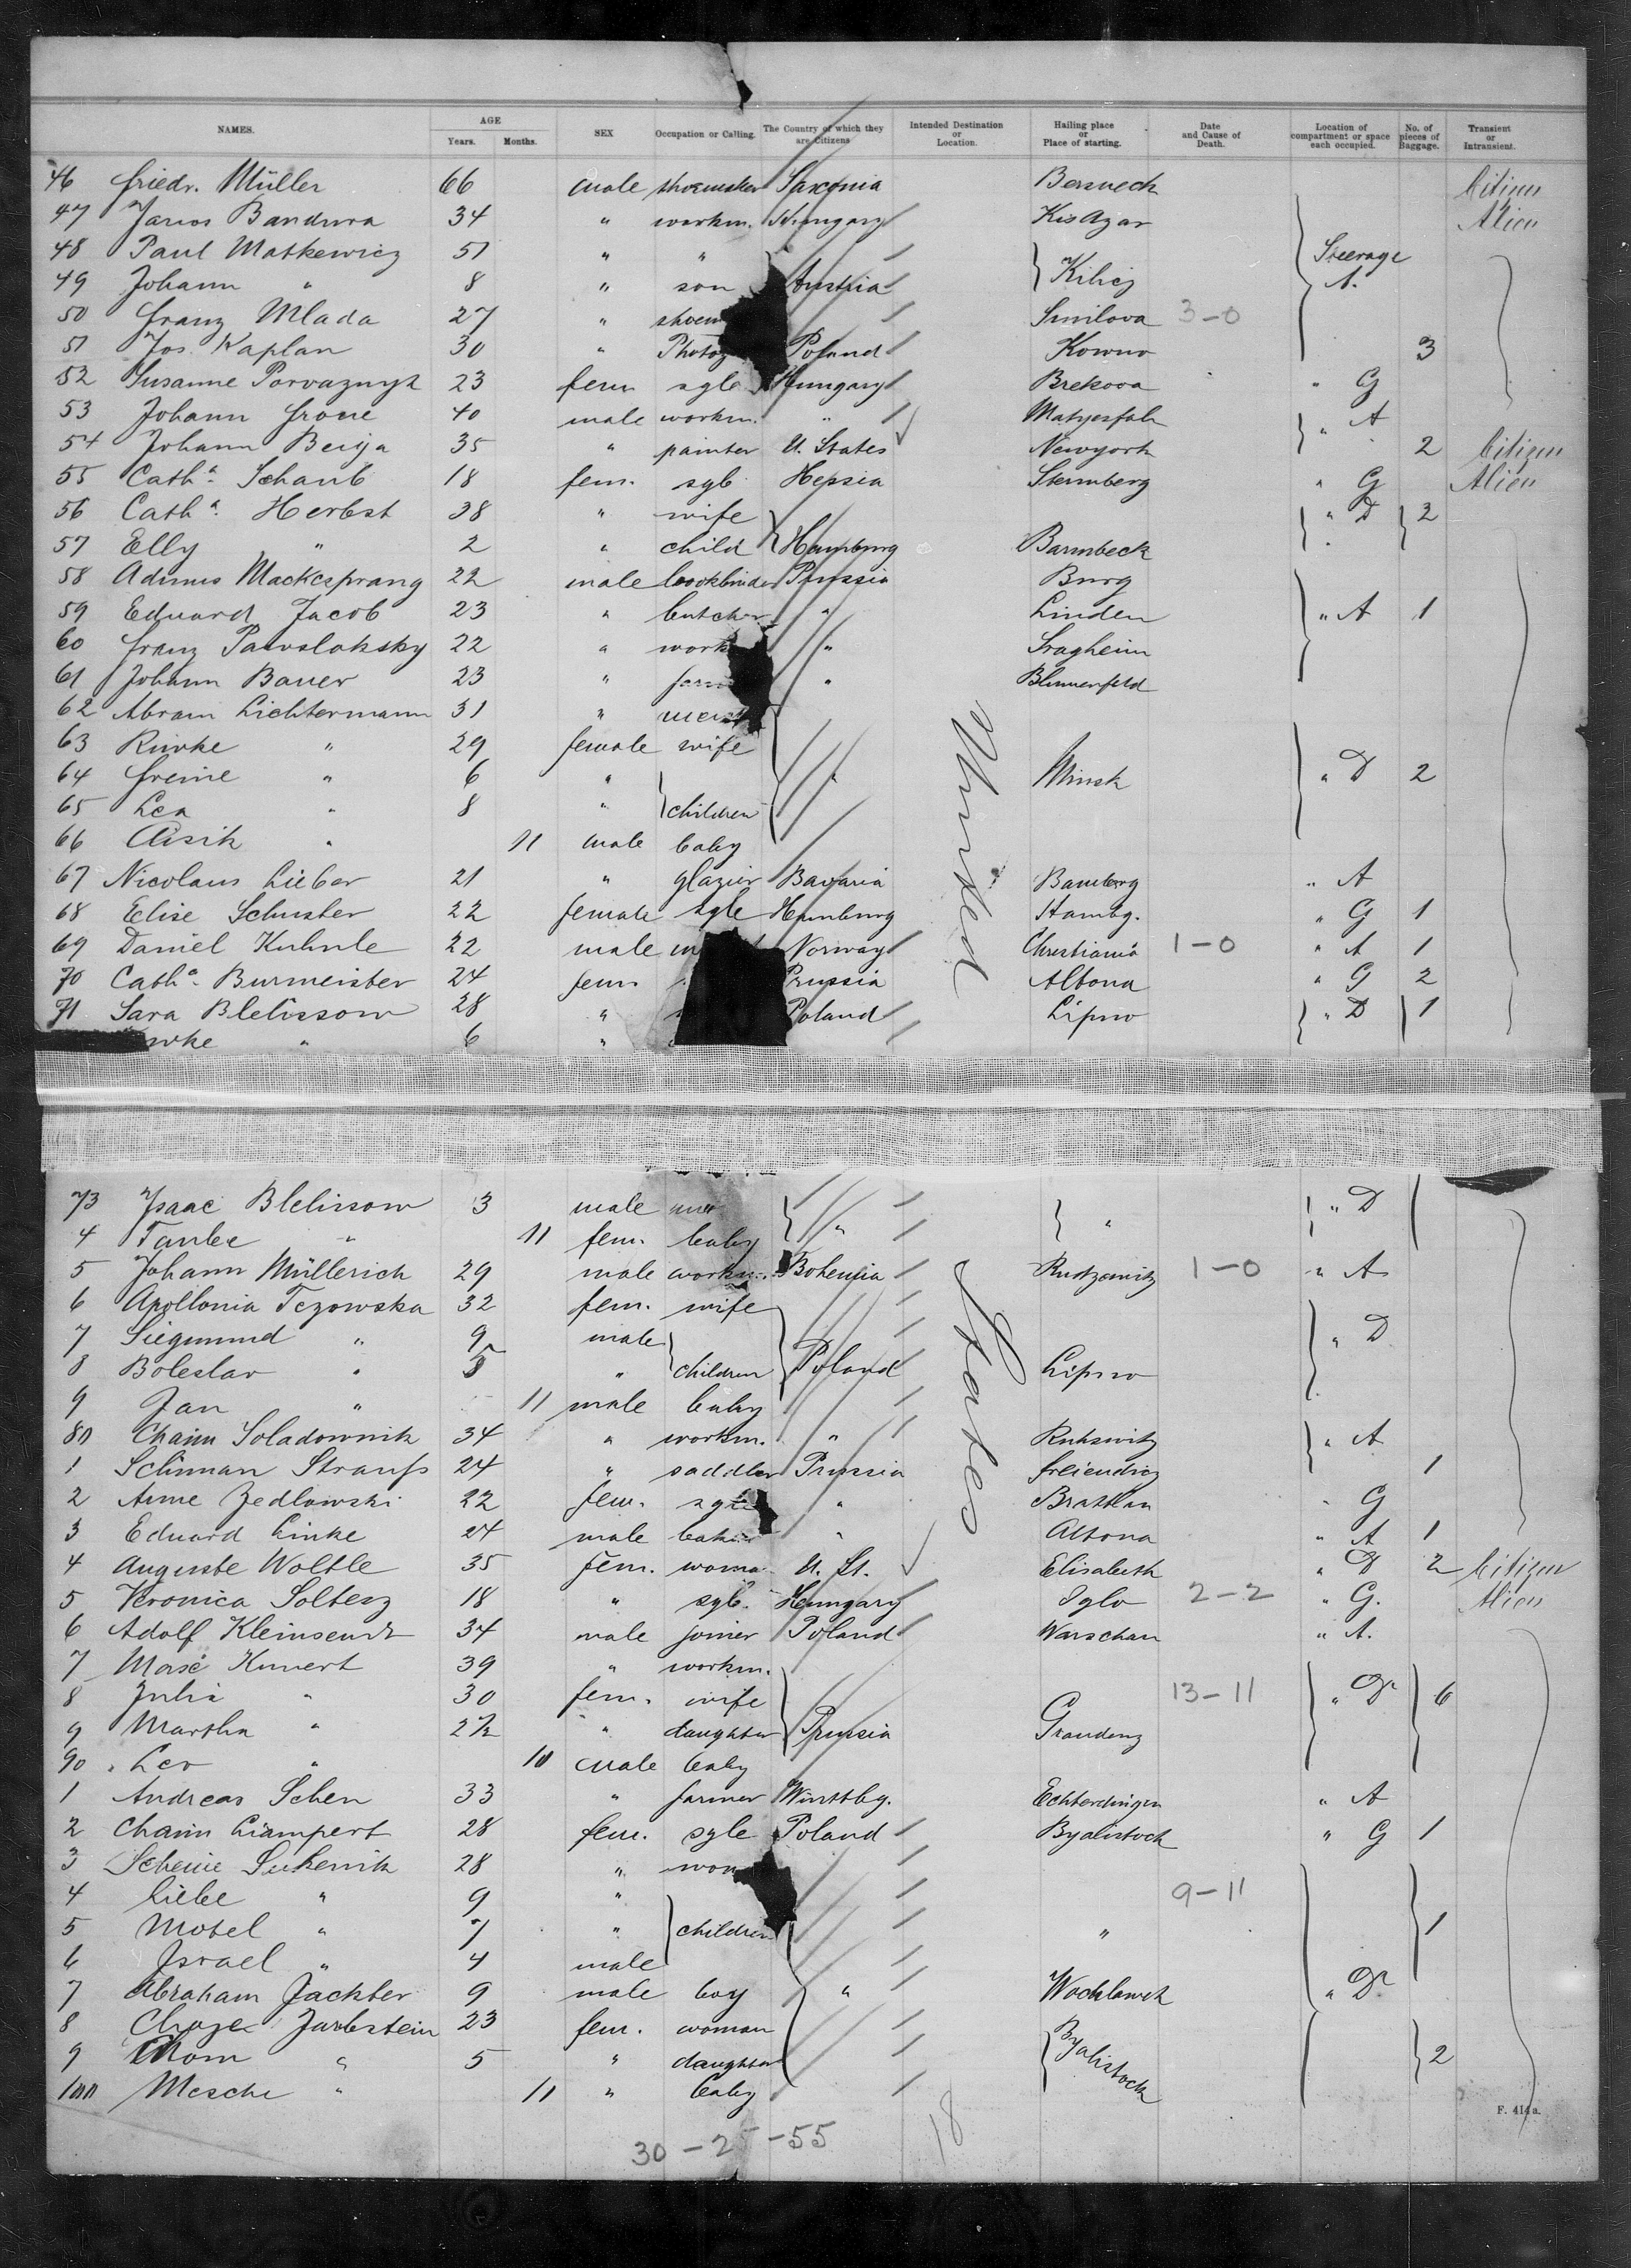 NAMES. AGE Years. Months. SEX Occupation or Calling. The Country of which they are Citizens Intended Destination or Location. Hailing place or Place of starting. Date and Cause of Death. Location of compartment or space each occupied. No. of pieces of Baggage. Transient or Intransient.
46 Friedr. Müller 66 male shoemaker Saxonia Citizen
47 Janos Bandura 34 " workm. Hungary Kis Azar Alien
48 Paul Matkewicz 51 " " Steerage
49 Johann " 8 " son Austria A.
50 Franz Mlada 27 " Smilova 3-0
51 Jos. Kaplan 30 " Poland Kowno 3
52 Susanne 23 fem sgle Hungary Brekova " G
53 Johann Frone 40 male workm. " " A
54 Johann Beiga 35 " painter U. States Newyork 2 Citizen
55 Cath.a Schaub 18 fem. sgle Hessia Sternberg " G Alien
56 Cath.a Herbst 38 " wife " D 2
57 Elly " 2 " child Hamburg Barmbeck
58 Mackesprang 22 male bookbinder Prussia Burg
59 Eduard Jacob 23 " butcher " Linden " A 1
60 Franz 22 " work "
61 Johann Bauer 23 " " Blumenfeld
62 Abram Lichtermann 31 "
63 Riwke " 29 female wife
64 Freine " 6 " " Minsk " D 2
65 Lea " 8 " children
66 Aisik " 11 male baby
67 Nicolaus Lieber 21 " glazier Bavaria Bamberg " A
68 Elise Schuster 22 female sgle Hamburg Hambg. " G 1
69 Daniel Kuhnle 22 male Norway Christiania 1-0 " A 1
70 Cath.a Burmeister 24 fem. Prussia Altona " G 2
71 Sara Blelissow 28 " Poland Lipno " D 1
wke " 6 "
United
73 Isaac Blelissow 3 male " " D
4 Taube " 11 fem. baby "
5 Johann Müllerich 29 male workm. Bohemia 1-0 " A
6 Apollonia Tezowska 32 fem. wife
7 Siegmund " 9 male " D
8 Boleslav " 5 " children Poland Lipno
9 Jan " 11 male baby
80 Chaim Soladownik 34 " workm. " " A
1 Strauss 24 " saddler Prussia 1
2 Anne Zedlowski 22 fem. sgle " " G
3 Eduard Linke 24 male " Altona " A 1
4 Auguste Woltle 35 fem. woman U. St. Elisabeth " D 2 Citizen
5 Veronica Soltesz 18 " sgle. Hungary Iglo 2-2 " G. Alien
6 Adolf 34 male joiner Poland Warschau " A.
7 Kunert 39 " workm.
8 Julia " 30 fem. wife 13-11 " D 6
9 Martha " 2½ " daughter Prussia Graudenz
90 Leo " 10 male baby
1 Andreas 33 " farmer Wurttbg. Echterdingen " A
2 Chaim Liampert 28 fem. sgle Poland Byalistock " G 1
3 Scheine Sukenik 28 "
4 Liebe " 9 " 9-11
5 Motel " 7 " children " 1
6 Israel " 4 male
7 Abraham Jachter 9 male boy " Wochlawek " D
8 Jarbstein 23 fem. woman
9 " 5 " daughter Byalistock 2
100 Mesche " 11 " baby
States
F. 414a.
30-25-55
18